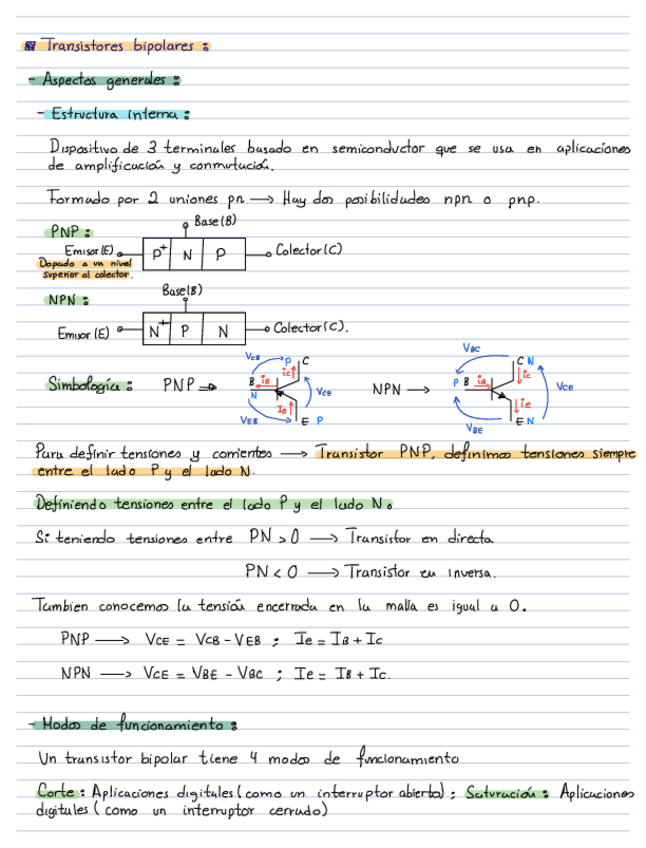 Transistores bipolares:
- Aspectos generales:
- Estructura interna:
Dispositivo de 3 terminales basado en semiconductor que se usa en aplicaciones
de amplificación y conmutación.
Formado por 2 uniones pn → Hay dos posibilidades npn o pnp.
PNP:
Base (B)
Emisor (E) P+ N P Colector (C)
Dopado a un nivel
superior al colector.
NPN:
Base (B)
Emisor (E) N+ P N Colector (C).
Simbología: PNP ⇒ VCB P C ic B iB N VCE Ie VEB E P NPN → VBC C N ic P B iB VCE ie VBE E N
Para definir tensiones y corrientes → Transistor PNP, definimos tensiones siempre
entre el lado P y el lado N.
Definiendo tensiones entre el lado P y el lado N.
Si teniendo tensiones entre PN > 0 → Transistor en directa
PN < 0 → Transistor en inversa.
Tambien conocemos la tensión encerrada en la malla es igual a 0.
PNP → VCE = VCB - VEB ; Ie = IB + Ic
NPN → VCE = VBE - VBC ; Ie = IB + Ic.
- Modos de funcionamiento:
Un transistor bipolar tiene 4 modos de funcionamiento
Corte: Aplicaciones digitales (como un interruptor abierto); Saturación: Aplicaciones
digitales (como un interruptor cerrado)